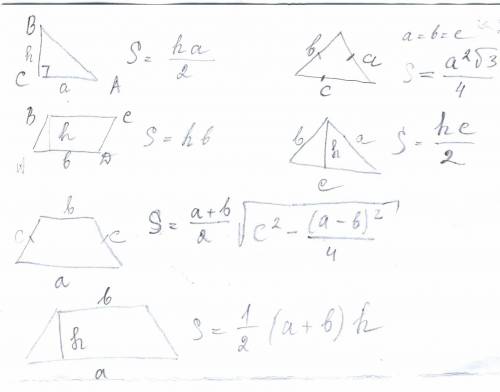 B
h
C a A
S = ha/2
b a
c
a = b = c
S = a²√3/4
B C
h
b D
S = hb
b h a
c
S = hc/2
b
c c
a
S = (a+b)/2 √(c² - (a-b)²/4)
b
h
a
S = 1/2 (a+b) h